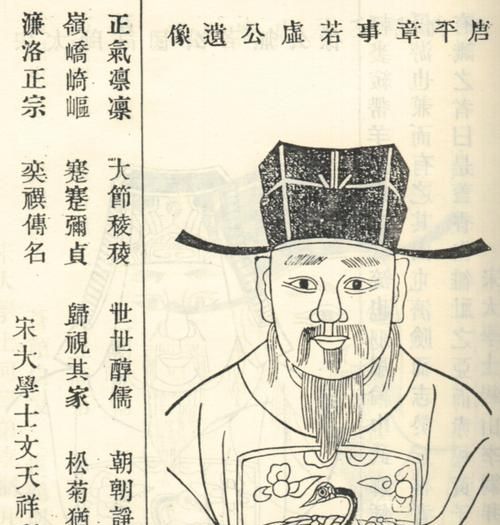 唐平章事若虛公遺像
正氣凛凛 大節稜稜 世世醇儒 朝朝諍
嶺嶠崎嶇 蹇蹇彌貞 歸視其家 松菊猶
濂洛正宗 奕禩傳名
宋大學士文天祥